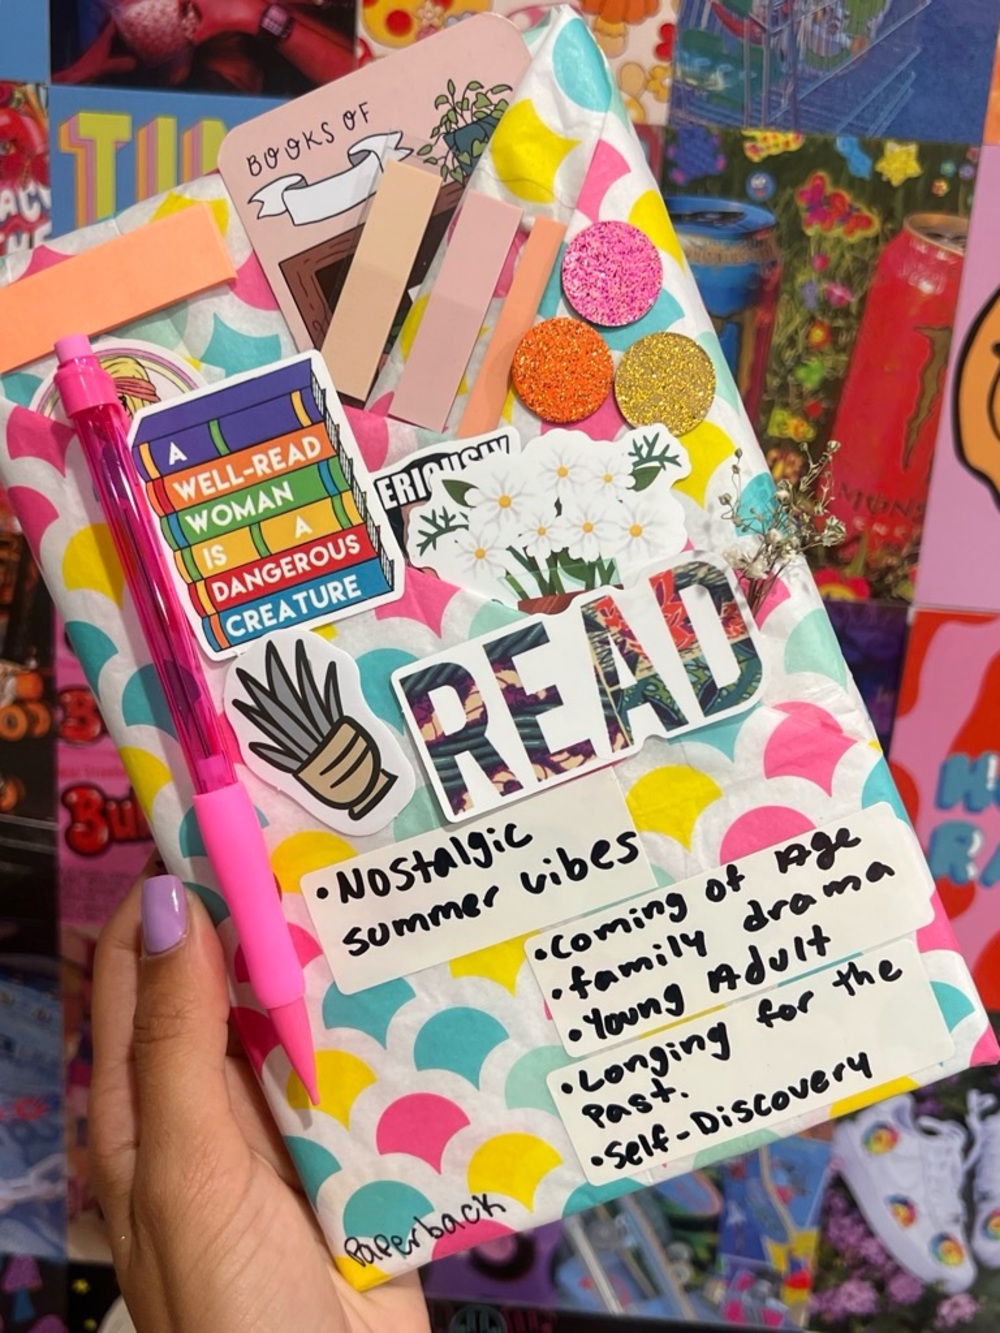 BOOKS OF
A
WELL-READ
WOMAN
IS A
DANGEROUS
CREATURE
ERIOUSLY
READ
•Nostalgic
summer vibes
•Coming of Age
•family drama
•Young Adult
•Longing for the
Past.
•Self-Discovery
Paperback